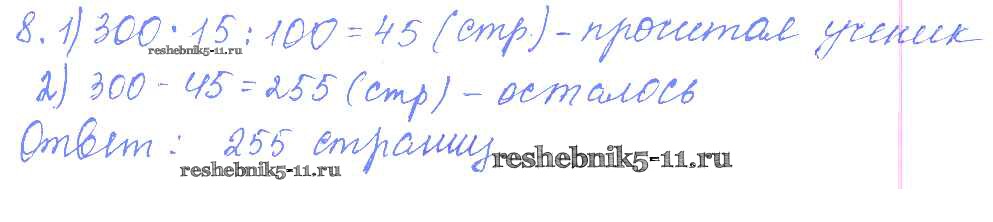 8. 1) 300 · 15 : 100 = 45 (стр.) - прочитал ученик
reshebnik5-11.ru
2) 300 - 45 = 255 (стр) - осталось
Ответ : 255 страниц
reshebnik5-11.ru
reshebnik5-11.ru